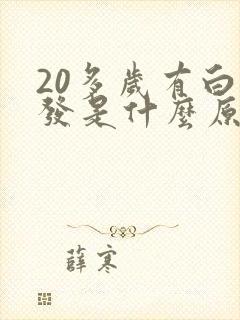 20多歲有白
發是什麼原
薛寒